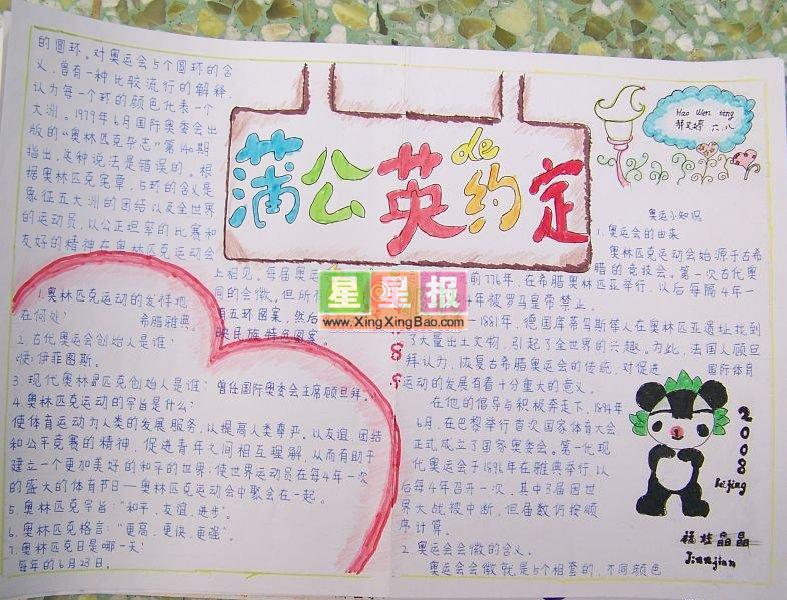 的圆环。对奥运会5个圆环的含
义,曾有一种比较流行的解释,
认为每一个环的颜色代表一个
大洲。1979年6月国际奥委会出
版的“奥林匹克杂志”第140期
指出,这种说法是错误的。根
据奥林匹克宪章,5环的含义是
象征五大洲的团结以及全世界
的运动员,以公正坦率的比赛和
友好的精神在奥林匹克运动会
上相见。每届奥运
同的会徽。但所
有五环图案,然后
映民族特色图案。
1.奥林匹克运动的发作地
在何处? 希腊雅典。
2.古代奥运会创始人是谁?
使:伊菲图斯。
3.现代奥林匹克创始人是谁? 曾任国际奥委会主席顾旦拜。
4.奥林匹克运动的宗旨是什么?
使体育运动为人类的发展服务,以提高人类尊严。以友谊、团结
和公平竞赛的精神,促进青年之间相互理解,从而有助于
建立一个更加美好的和平的世界;使世界运动员在每4年一次
的盛大的体育节日——奥林匹克运动会中聚会在一起。
5.奥林匹克宗旨:“和平、友谊、进步”。
6.奥林匹克格言:“更高、更快、更强”。
7.奥林匹克日是哪一天?
每年的6月23日。
蒲公英de约定
星星报
www.XingXingBao.com
Hao Wen ting
郝文婷 六.八
奥运小知识
1.奥运会的由来
奥林匹克运动会始源于古希
腊的竞技会。第一次古代奥
前776年,在希腊奥林匹亚举行,以后每隔4年一
4年被罗马皇帝禁止。
1881年,德国库蒂乌斯等人在奥林匹亚遗址找到
了大量出土文物,引起了全世界的兴趣。为此,法国人顾旦
拜认为,恢复古希腊奥运会的传统,对促进国际体育
运动的发展有着十分重大的意义。
在他的倡导与积极奔走下,1894年
6月,在巴黎举行首次国家体育大会
正式成立了国家奥委会。第一次现
代奥运会于1896年在雅典举行,以
后每4年召开一次,其中3届因世
界大战被中断,但届数仍按顺
序计算。
2.奥运会会徽的含义。
奥运会会徽就是5个相套的,不同颜色
2008
Beijing
福娃晶晶